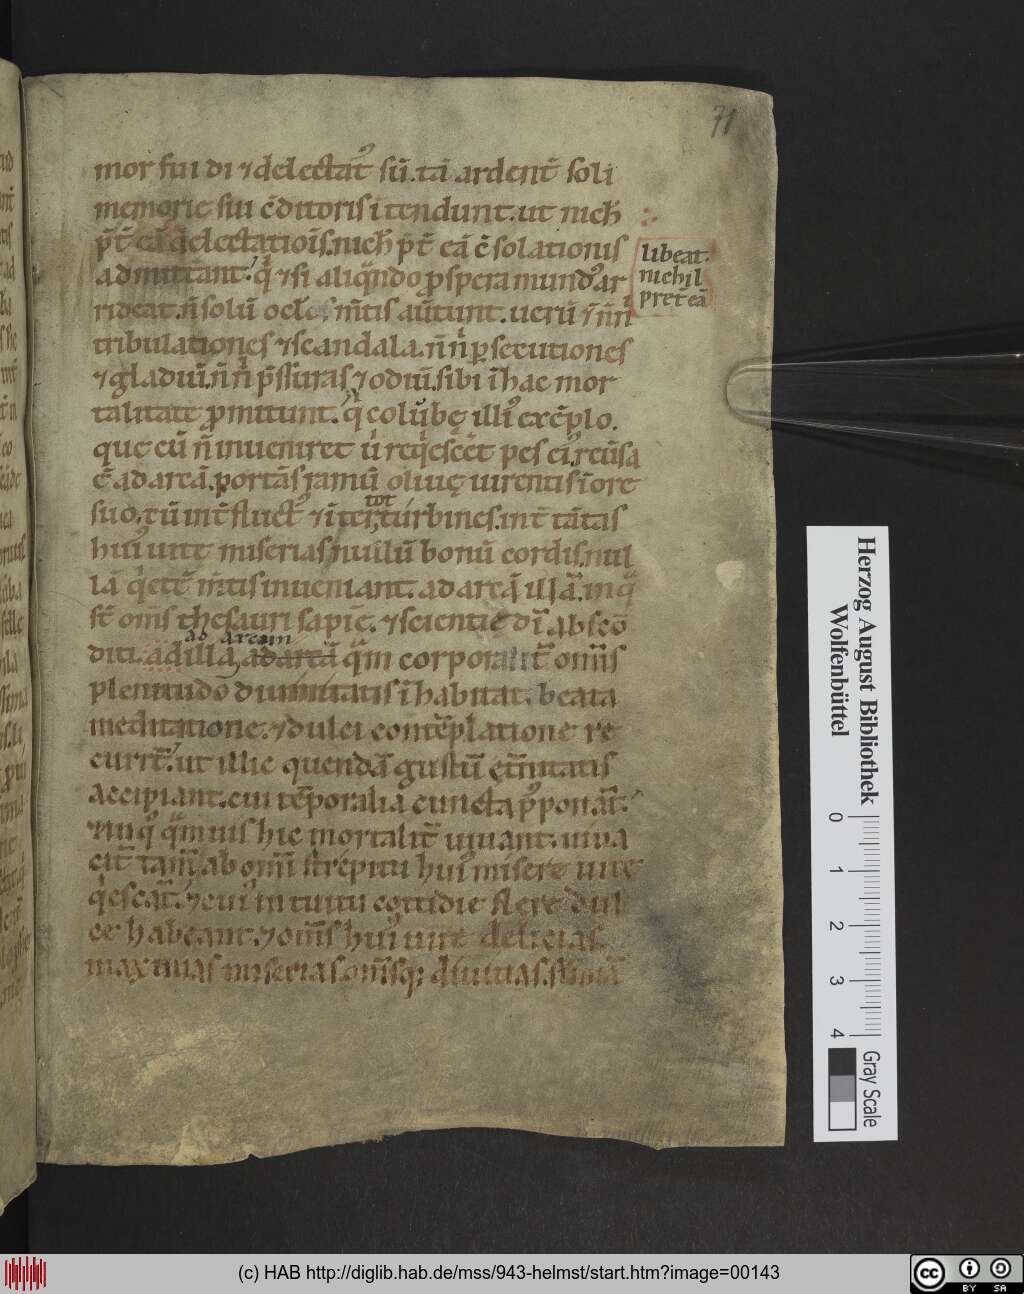 71
mor sui di ⁊ delectat᷒ sū. tā ardent̄ soli
memorie sui c̄ditoris ītendunt. ut nich̄
p̄t̄ eā delectatiōīs. nich̄ p̄t̄ eā c̄solationis
admittant. q̇ ⁊ si aliqn̄do ꝓspera mund᷒ ar
rideat. n̄ solū m̄tis aūtunt. uerū ⁊ n̄n
tribulationes ⁊ scandala. n̄n̄ ꝑsecutiones
⁊ gladiū. n̄n̄ p̄ssuras. ⁊ odiū. sibi ī hac mor
talitate ꝓmittunt. q̇ colūbę illi᷒ exēplo.
que cū n̄ inueniret u̇ reqesceēt pes ei᷒. reūsa
ē ad arcā. portās ramū oliuę uirentis ī ore
suo. tū int̄ fluct᷒ ⁊ int̄ tot turbines. int̄ tātas
hui᷒ uite miserias nullū bonū cordis. nul
lā q̇etē m̄tis inueniant. ad arcā illā. in q̄
st̄ om̄s thesauri sapiē. ⁊ scientie dī abscō
diti. ad illā, ad arcam adarcā q̄m corporalit̄ om̄is
plenitudo diuinitatis īhabitat. beata
meditatione. ⁊ dulci contēplatione re
currt̄. ut illic quendā gustū et̄nitatis
accipiant. cui tēporalia cuncta p᷒ponāt.
q̄muis hic mortalit̄ uiuant. uiua
cit̄ tam̄ ab omī strepitu hui᷒ misere uite
q̇escāt. ⁊ ei᷒ intuitu cottidie flere dul
ce habeant. ⁊ om̄s hui᷒ uite delicias.
maximas miserias. om̄sq; diuitias. sūmā
libeat.
nichil
pret̄ eā
Herzog August Bibliothek
Wolfenbüttel
0 1 2 3 4
Gray Scale
(c) HAB http://diglib.hab.de/mss/943-helmst/start.htm?image=00143
cc BY SA